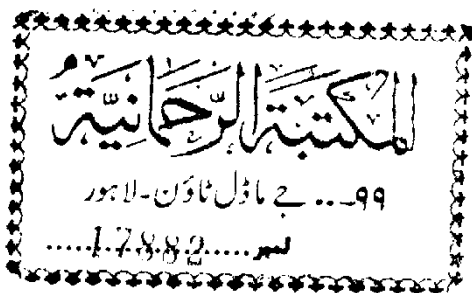 المكتبة الرحمانية
۹۹... جے ماڈل ٹاؤن - لاہور
نمبر.....17882.....